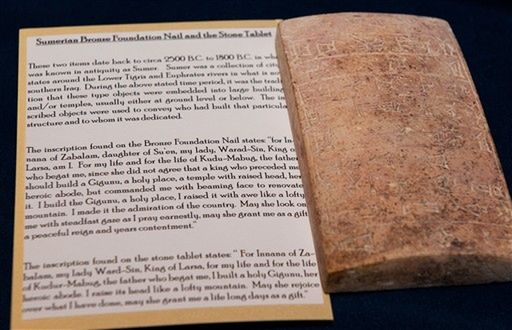 Sumerian Bronze Foundation Nail and the Stone Tablet
These two items date back to circa 2500 B.C. to 1800 B.C. in
was known in antiquity as Sumer. Sumer was a collection of
states around the Lower Tigris and Euphrates rivers in what is
southern Iraq. During the above stated time period, it was the
tion that these type objects were embedded into large
and/or temples, usually either at ground level or below. The
scribed objects were used to convey who had built that
structure and to whom it was dedicated.
The inscription found on the Bronze Foundation Nail states: "for In-
nana of Zabalam, daughter of Su'en, my lady, Warad-Sin, King of
Larsa, am I. For my life and for the life of Kudu-Mabug, the father
who begat me, since she did not agree that a king who preceded me
should build a Gigunu, a holy place, a temple with raised head, her
heroic abode, but commanded me with beaming face to renovate
it. I build the Gigunu, a holy place, I raised it with awe like a lofty
mountain. I made it the admiration of the country. May she look on
me with stedfast gaze as I pray earnestly, may she grant me as a gift
a peaceful reign and years contentment."
The inscription found on the stone tablet states: " For Innana of Za-
balam, my lady Ward-Sin, King of Larsa, for my life and for the life
of Kudur-Mabug, the father who begot me, I built a holy Gigunu, her
heroic abode. I raise its head like a lofty mountain. May she rejoice
over what I have done, may she grant me a life long days as a gift."